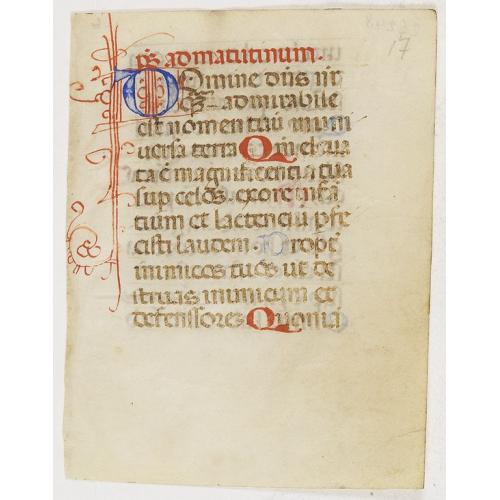 17
ps ad matutinum.
Domine dns nr
q̃ admirabile
est nomen tuū in uni
versa terra Qm eleua
ta ē magnificentia tua
sup celos. ex ore infa
tium et lactenciū pfe
cisti laudem. Propt̃
inimicos tuos ut de
struas inimicum et
defenssorez Quoniā